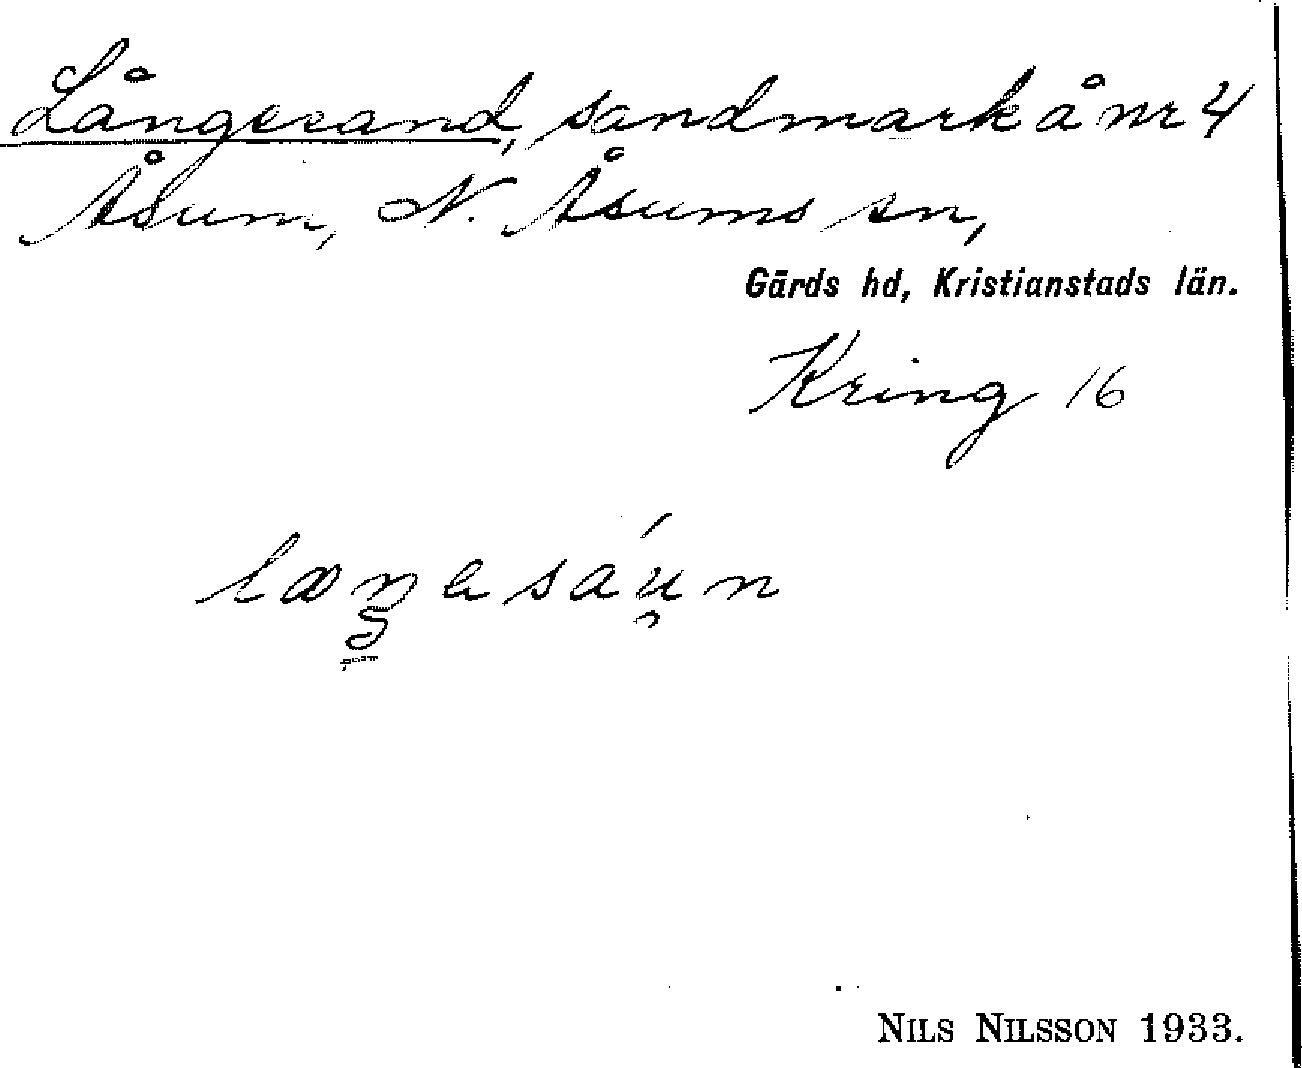 Långesand, sandmark å nr 4
Åsum, N. Åsums sn,
Gärds hd, Kristianstads län.
Kring 16
NILS NILSSON 1933.